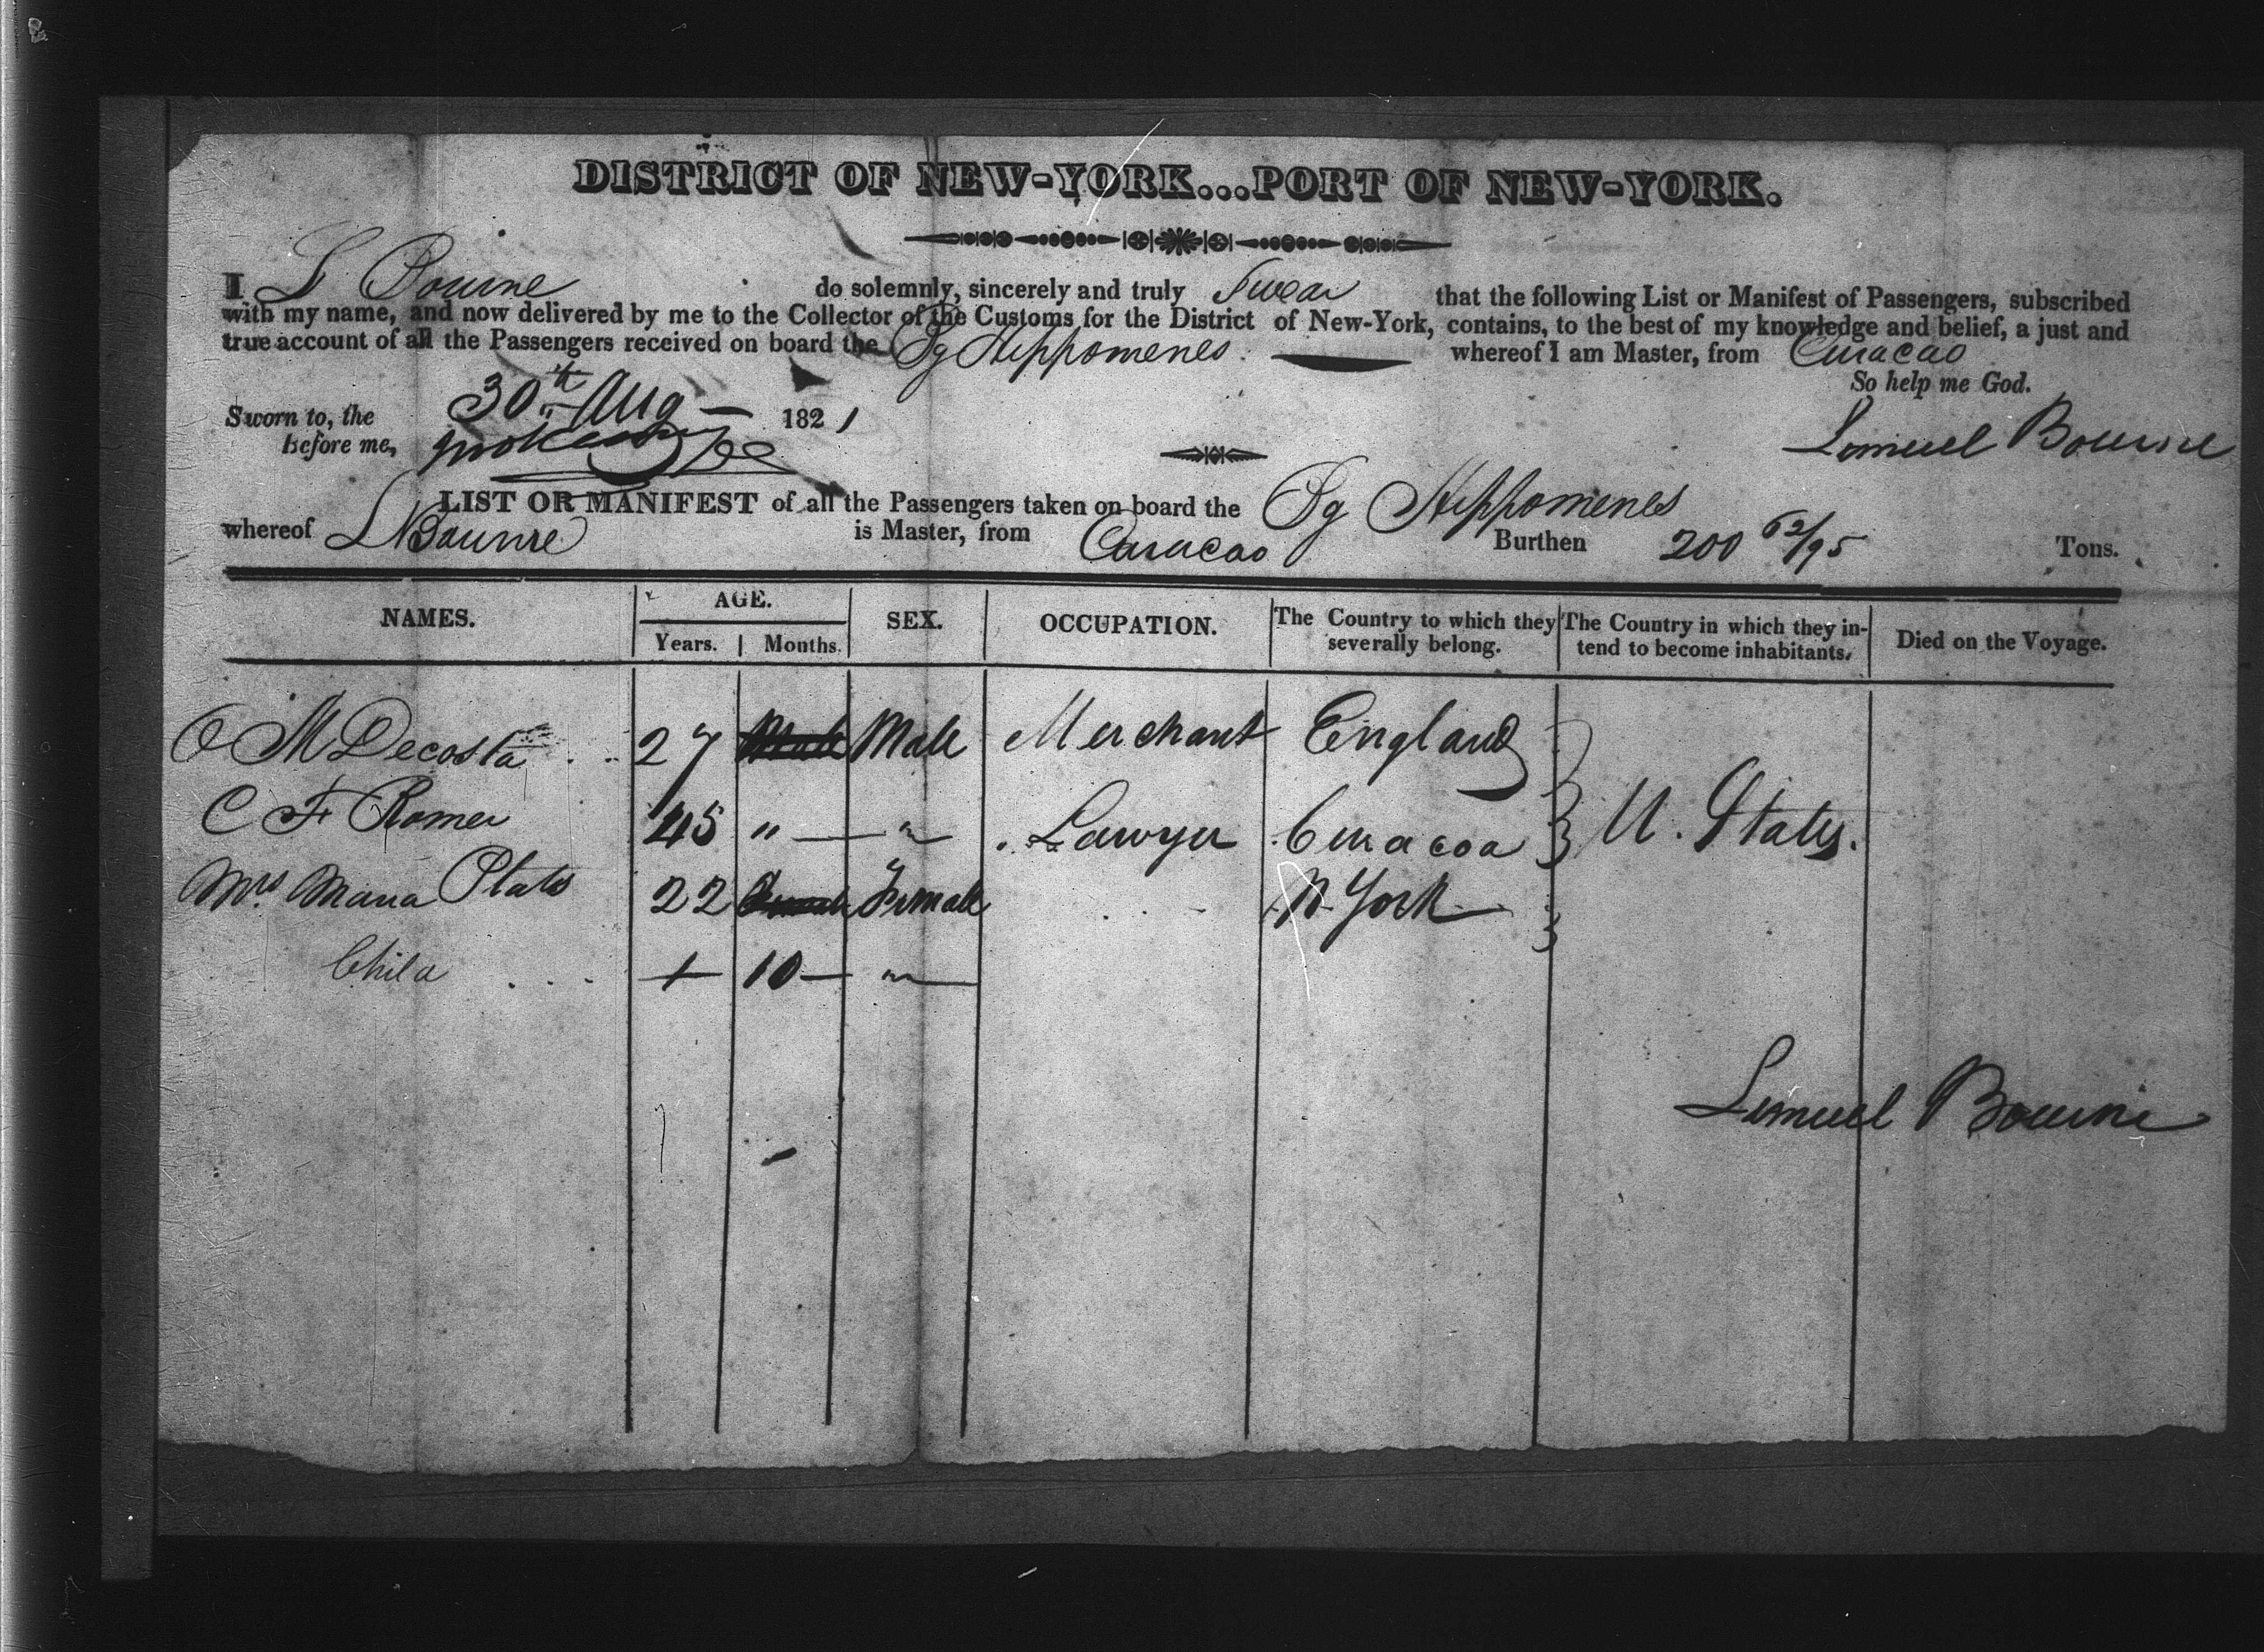 DISTRICT OF NEW-YORK...PORT OF NEW-YORK.
I L Bourne do solemnly, sincerely and truly Swear that the following List or Manifest of Passengers, subscribed
with my name, and now delivered by me to the Collector of the Customs for the District of New-York, contains, to the best of my knowledge and belief, a just and
true account of all the Passengers received on board the Bg Hippomenes whereof I am Master, from Curacao
So help me God.
Sworn to, the 30th Aug 1821
before me,
Lemuel Bourne
LIST OR MANIFEST of all the Passengers taken on board the Bg Hippomenes
whereof L Bourne is Master, from Curacao Burthen 200 62/95 Tons.
NAMES. AGE. Years. Months. SEX. OCCUPATION. The Country to which they severally belong. The Country in which they intend to become inhabitants. Died on the Voyage.
M Decosta 27 Male Merchant England
C F Romer 45 " " Lawyer Curacoa U. States.
Mrs Maria 22 Female N York
Child 1 10 "
Lemuel Bourne